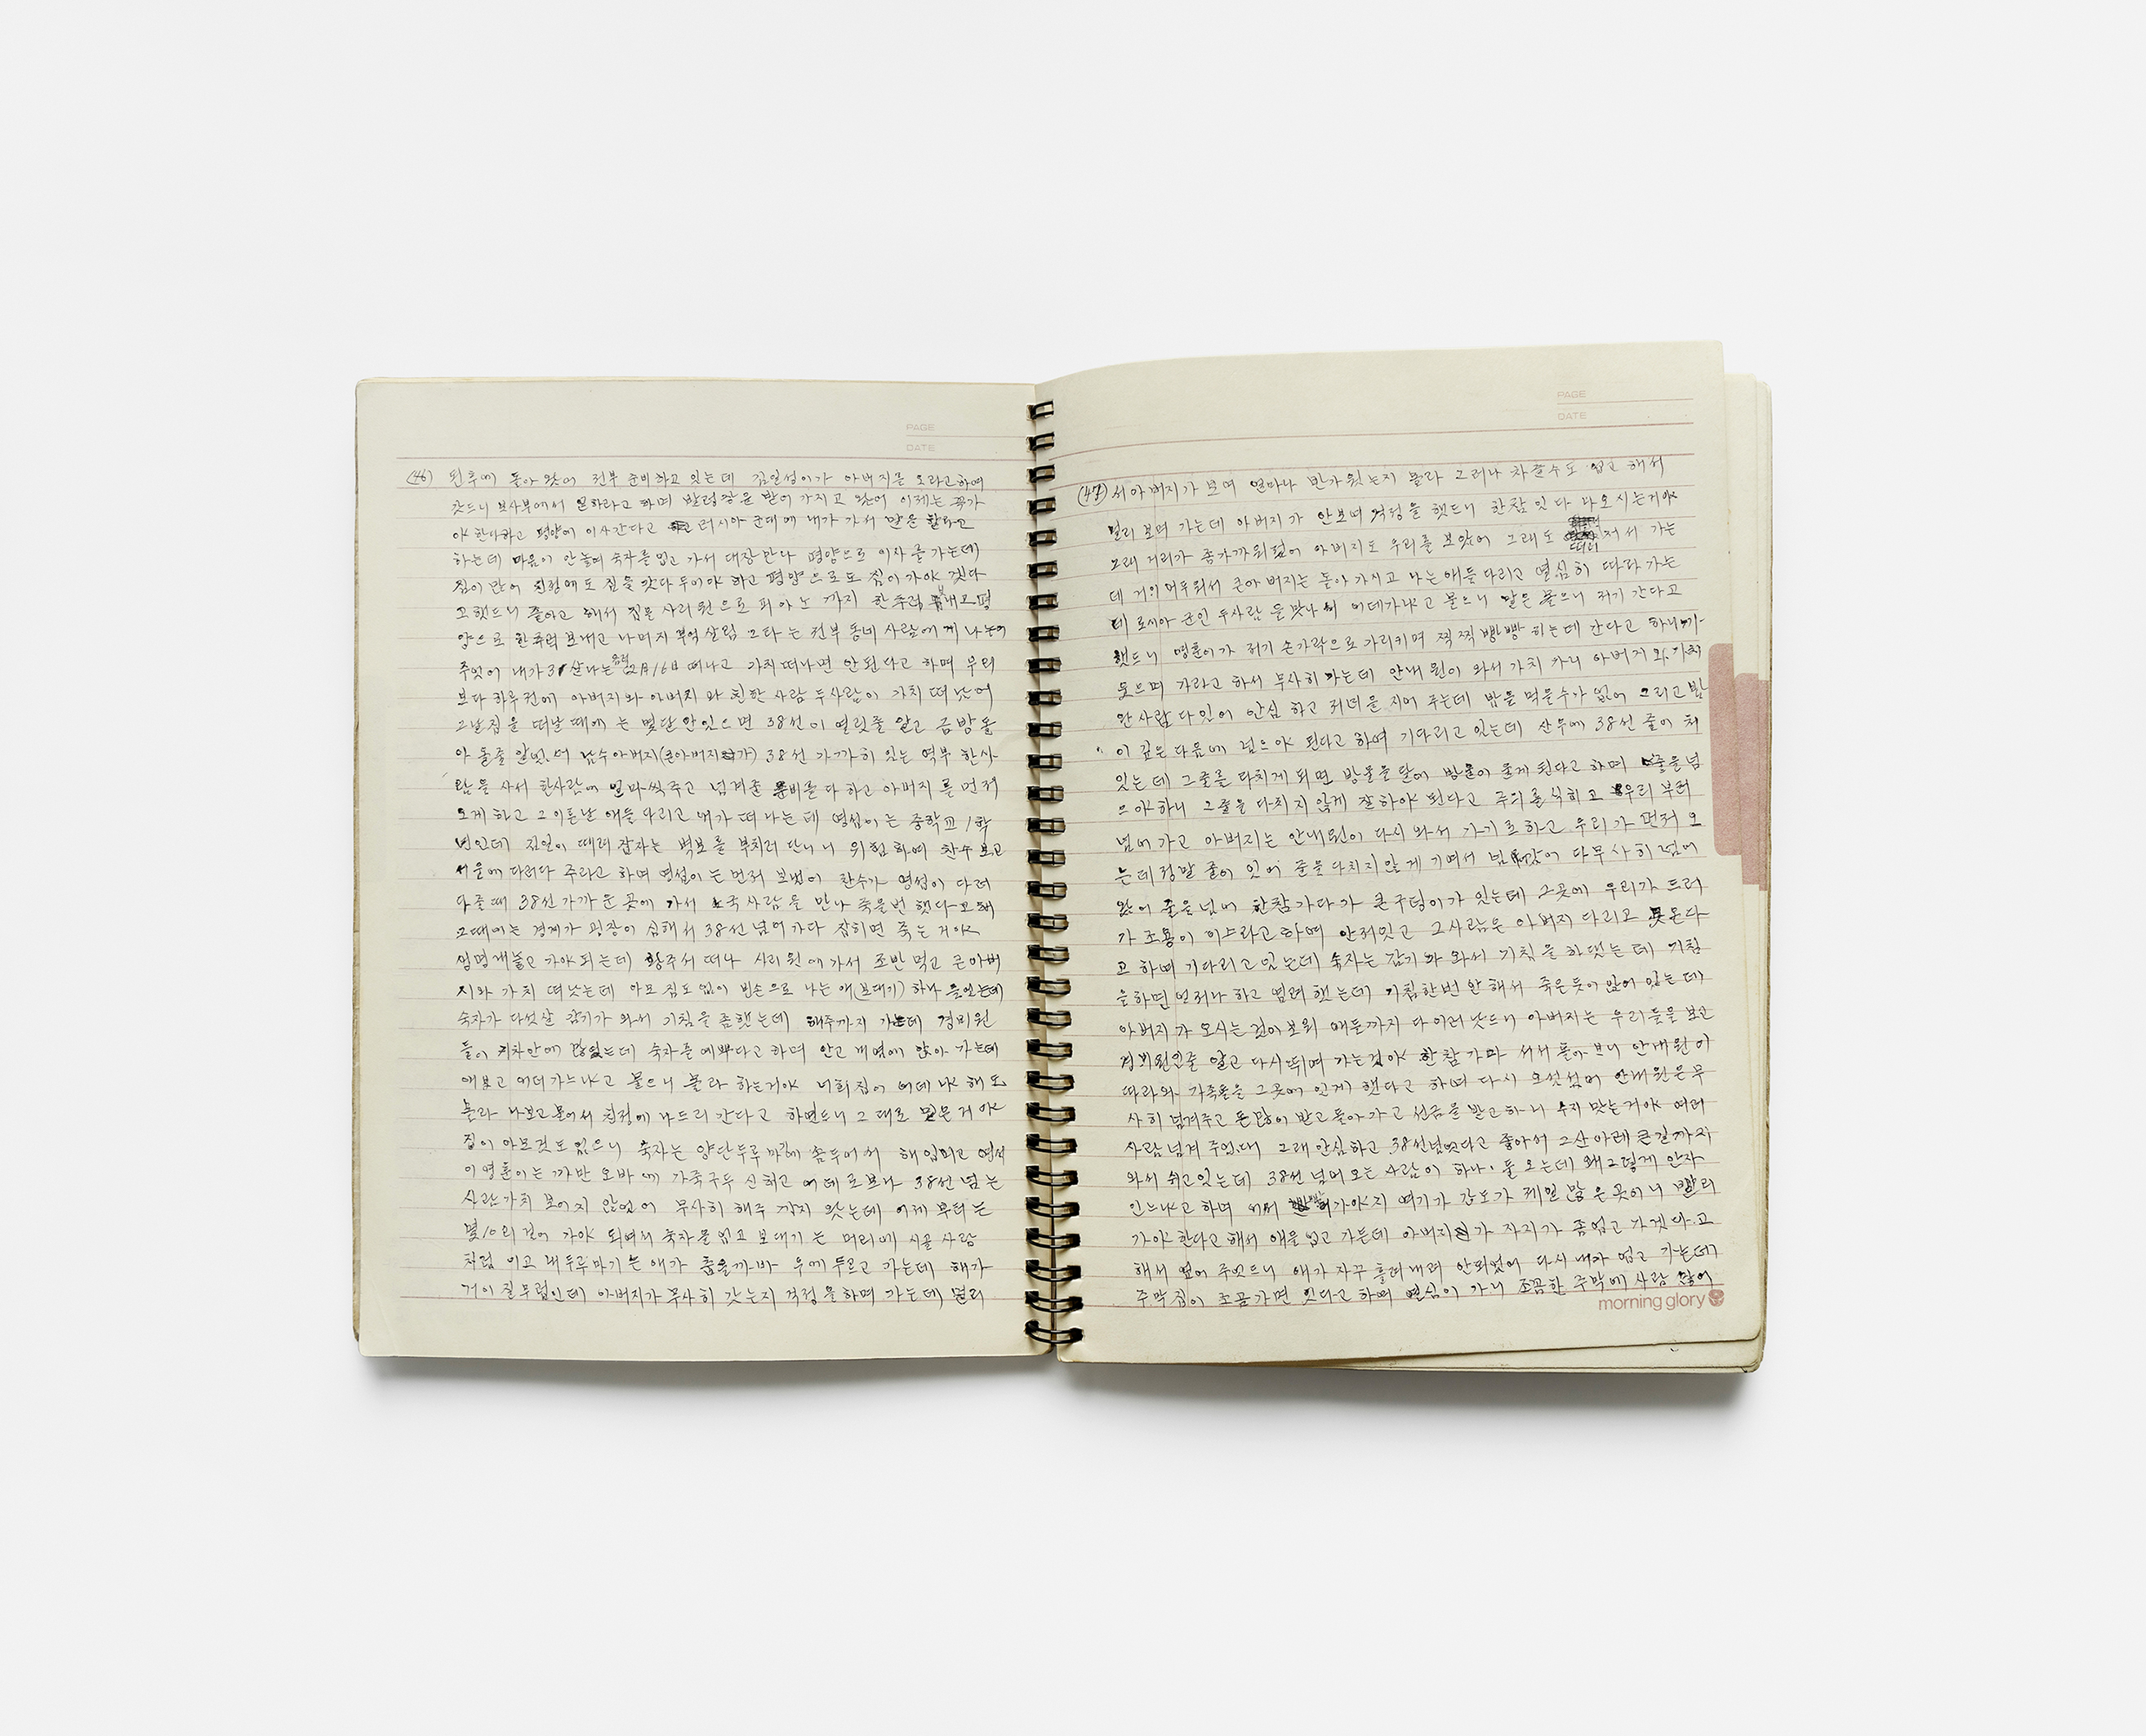 PAGE
DATE
(46) 된후에 돌아 왔어 전부 준비하고 있는데 김일성이가 아버지를 오라고하여
갓드니 보사부에서 일하라고 하며 발령장을 받어 가지고 왔어 이제는 꼭가
야 한다하고 평양에 이사간다고 러시아 군대에 내가 가서 말을 할라고
하는데 마음이 안놓여 숙자를 업고 가서 대장만나 평양으로 이사를 가는데
짐이 만어 친정에도 짐을 갓다 두어야 하고 평양으로도 짐이 가야 겟다
고햇드니 좋아고 해서 짐은 사리원으로 피아노 까지 한추럭 보내고 평
양으로 한추럭 보내고 나머지 부엌살림 그타는 전부 동네 사람에게 나누어
주엇어 내가 31살나는 음력 2月16日 떠나고 가치떠나면 안된다고 하며 우리
보다 하루전에 아버지와 아버지와 친한 사람 두사람이 가치 떠낫어
그날집을 떠날때에는 몇달안잇으면 38선이 열릿줄 알고 금방돌
아 올줄 알엇어 남수아버지(큰아버지가) 38선 가까히 있는 역부 한사
람을 사서 한사람에 얼마씩주고 넘겨줄 준비를 다 하고 아버지를 먼저
오게 하고 그이튼날 애들 다리고 내가 떠나는데 영섭이는 중학교 1학
년인데 김일이 때려잡자는 벽보를 부치러 단니니 위험하여 찬수보고
서울에 다려다 주라고 하며 영섭이는 먼저 보냇어 찬수가 영섭이 다려
다줄때 38선 가까운 곳에 가서 사람을 만나 죽을번 했다고해
그때에는 경계가 굉장이 심해서 38선 넘어가다 잡히면 죽는 거야
생명 내놓고 가야 되는데 황주서 떠나 사리원에 가서 조반 먹고 큰아버
지와 가치 떠낫는데 아모 짐도 없이 빈손으로 나는 애(보대기) 하나 들엇는데
숙자가 다섯살 감기가 와서 기침을 좀햇는데 해주까지 가는데 경비원
들이 기차안에 많있는데 숙자를 예뿌다고 하며 안고 내옆에 앉아 가는데
애보고 어디가느냐고 물으니 몰라 하는거야 너희집이 어데냐 해도
몰라 나보고 물어서 친정에 나드리 간다고 하면드니 그대로 믿은거야
짐이 아모것도 없으니 숙자는 양단두루마기에 솜두어서 해입히고 영섭
이 영훈이는 까만 오바에 가죽구두 신히고 어데로보나 38선 넘는
사람가치 보이지 않엇어 무사히 해주까지 왓는데 이제부터는
몇10리 걸어 가야 되여서 숙자를 업고 보대기는 머리에 시골 사람
처럼 이고 내두루마기는 애가 춥을까바 우에 두르고 가는데 해가
거이 질무렵인데 아버지가 무사히 갓는지 걱정을하며 가는데 멀리
PAGE
DATE
(47) 서아버지가 보여 얼마나 반가윗는지 몰라 그러나 차즐수도 업고 해서
멀리 보며 가는데 아버지가 안보여 걱정을 햇드니 한참 잇다 나오시는거야
그래 거리가 좀가까워젔어 아버지도 우리를 보았어 그래도 떠러저서 가는
데 거의 어두워서 큰아버지는 돌아 가시고 나는 애들 다리고 열심히 따라 가는
데 로시아 군인 두사람을 맛나서 어데가냐고 물으니 말은 몰으니 저기 간다고
햇드니 영훈이가 저기 손가락으로 가리키며 찍찍 빵빵 하는데 간다고 하니까
웃으며 가라고 하서 무사히 가는데 안내원이 와서 가치 가니 아버지와 가치
안사람 다있어 안심 하고 저녁을 지어 주는데 밥을 먹을수가 없어 그리고 밤
이 깊은 다음에 넘으야 된다고 하여 기다리고 있는데 산우에 38선 줄이 처
있는데 그줄를 다치게 되면 방울을 달어 방울이 울게 된다고 하며 줄을 넘
으야하니 그줄을 다치지 않게 잘하야 된다고 주의를 식히고 우리 부터
넘어 가고 아버지는 안내원이 다시 와서 가기로하고 우리가 먼저 오
는데 정말 줄이 잇어 줄을 다치지 않게 기여서 넘어 다무사히 넘어
왔어 줄을넘어 한참가다가 큰구덩이가 있는데 그곳에 우리가 드러
가 조용이 이스라고 하며 안저있고 그사람은 아버지 다리고 온다
고 하여 기다리고 있는데 숙자는 감기가 와서 기침을 하댓는데 기침
을하면 엇저나 하고 염려 했는데 기침한번 안해서 죽은듯이 앉어 있는데
아버지가 오시는 것이보워 애들까지 다 이러낫드니 아버지는 우리들을 보고
경비원인줄 알고 다시 뛰여 가는것야 한참 가다 서서 돌아보니 안내원이
따라와 가족들을 그곳에 잇게 했다고 하여 다시 오섯섰어 안내원은 무
사히 넘겨주고 돈많이 받고 돌아가고 선금을 받고하니 수지 맛는거야 여러
사람 넘겨 주었대 그래 안심하고 38선넘엇다고 좋아서 그산 아레 큰길까지
와서 쉬고있는데 38선 넘어 오는 사람이 하나 둘 오는데 왜그렇게 안자
인느냐고 하며 어서 가야지 여기가 강도가 제일 많은 곳이니 빨리
가야 한다고 해서 애을업고 가는데 아버지가 자지가 좀업고 가겟다고
해서 업어 주엇드니 애가 자꾸 흘러내려 안되었어 다시 내가 업고 가는데
주막집이 조곰가면 잇다고 하며 열심이 가니 조곰한 주막에 사람 많어
morning glory